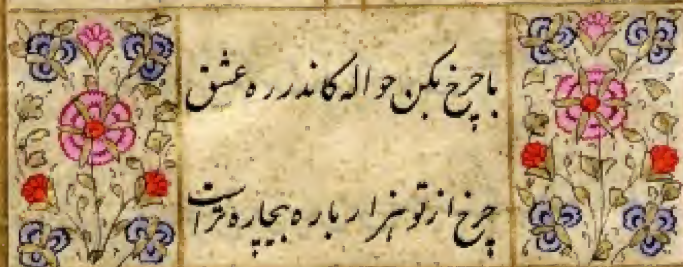 با چرخ مکن حواله کاندر ره عشق
چرخ از تو هزار باره بیچاره تر است